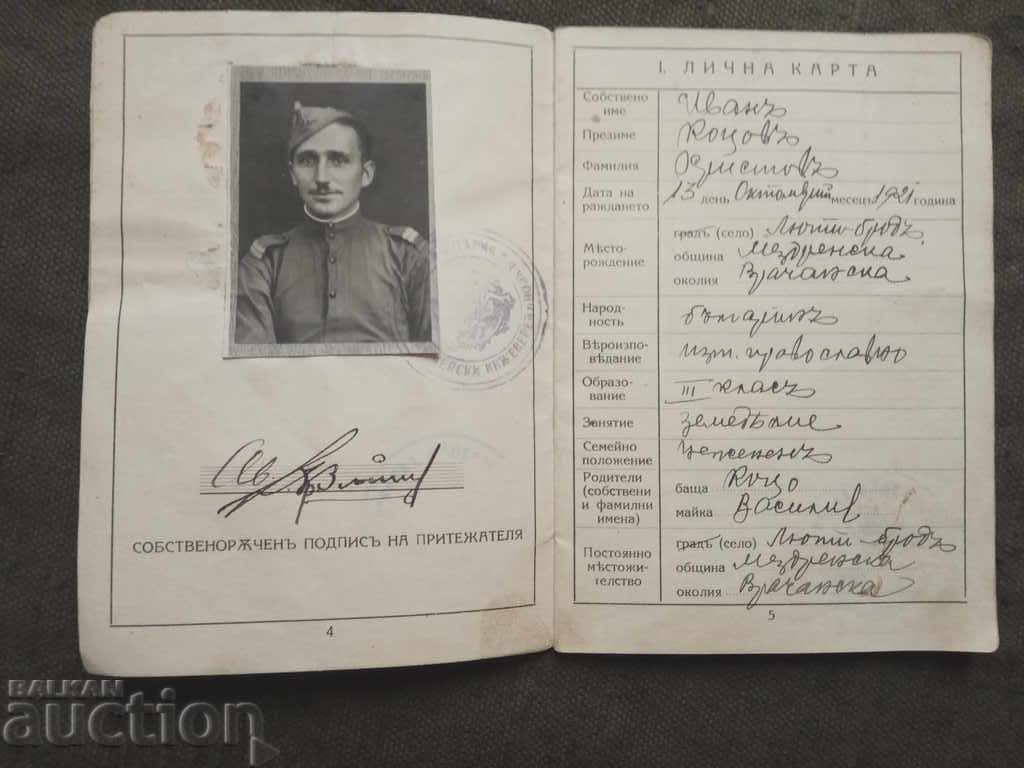 СОБСТВЕНОРѪЧЕНЪ ПОДПИСЪ НА ПРИТЕЖАТЕЛЯ
4
I. ЛИЧНА КАРТА
Собствено име Иванъ
Презиме Коцовъ
Фамилия Христовъ
Дата на раждането 13 день Октомврий месецъ 1921 година
Мѣсто-рождение градъ (село) Люти-бродъ
община Мездренска
околия Врачанска
Народ-ность българинъ
Вѣроизпо-вѣдание изт. православно
Образо-вание III класъ
Занятие земедѣлие
Семейно положение нежененъ
Родители (собствени и фамилни имена) баща Коцо
майка Василия
Постоянно мѣстожи-телство градъ (село) Люти-бродъ
община Мездренска
околия Врачанска
5
BALKAN
auction